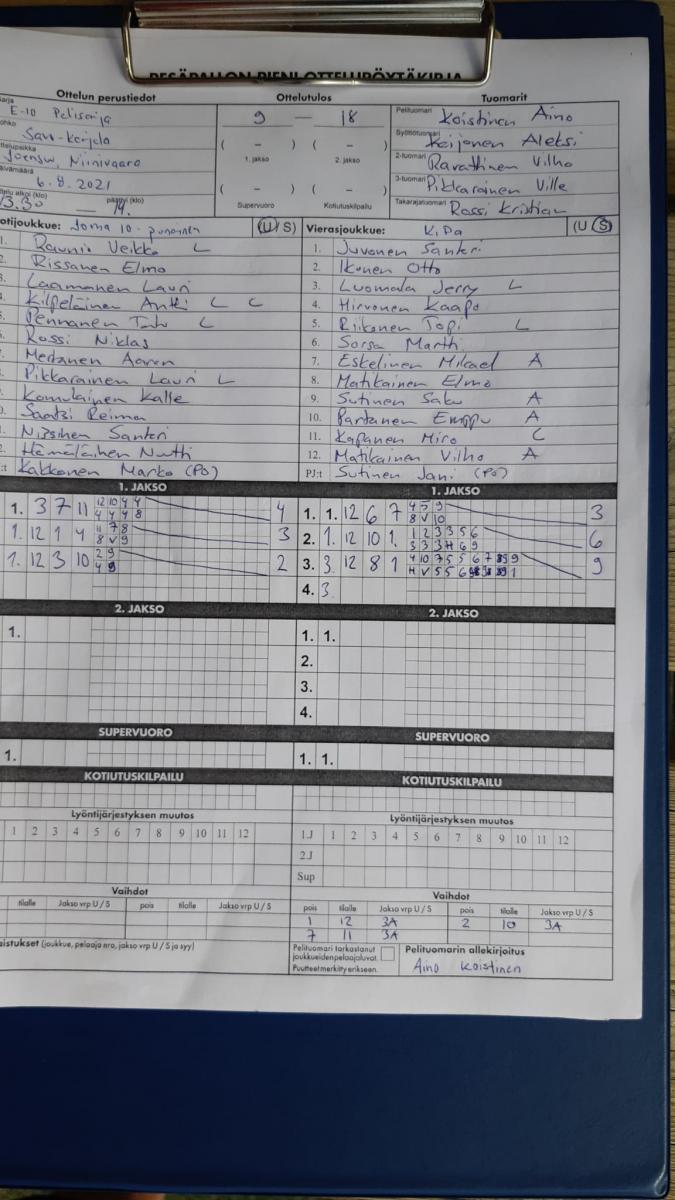 PESÄPALLON PIENI OTTELUPÖYTÄKIRJA
Ottelun perustiedot Ottelutulos Tuomarit
E-10 9 — 18 Pelituomari Koistinen Aino
Savo-Karjala Syöttötuomari Aleksi
Joensuu, Niinivaara ( – ) ( – ) 2-tuomari Vilho
1. jakso 2. jakso
6.8.2021 ( – ) ( – ) 3-tuomari Pikkarainen Ville
13.30 — päättyi (klo) 19. Supervuoro Kotiutuskilpailu Takarajatuomari Rossi Kristian
otijoukkue: Joma 10 - punainen (U/S) Vierasjoukkue: KiPa (U/S)
Raunio Veikko L 1. Juvonen Santeri
Rissanen Elmo 2. Ikonen Otto
Laamanen Lauri 3. Luomala Jerry L
Kilpeläinen Antti L C 4. Hirvonen Kaapo
Pennanen L 5. Riikonen Topi L
Rossi Niklas 6. Sorsa Martti
Aaron 7. Eskelinen Mikael A
Pikkarainen Lauri L 8. Matikainen Elmo
Komulainen Kalle 9. Sutinen Saku A
Reima 10. Partanen Emppu A
Santeri 11. Kapanen Miro C
Hämäläinen Nuutti 12. Matikainen Vilho A
:t Kakkonen Marko (PO) PJ:t Sutinen Jani (PO)
1. JAKSO 1. JAKSO
1. 3 7 11 12 10 4 4 4 1. 1. 12 6 7 4 5 9 3
4 4 4 8 8 V 10
1. 12 1 4 11 7 8 3 2. 1. 12 10 1. 1 2 3 3 5 6 6
8 V 9 3 3 3 H 6 9
1. 12 3 10 2 9 2 3. 3 12 8 1 4 10 7 5 5 6 7 9 9
4 9 H V 5 5 6 1
4. 3.
2. JAKSO 2. JAKSO
1. 1. 1.
2.
3.
4.
SUPERVUORO SUPERVUORO
1. 1. 1.
KOTIUTUSKILPAILU KOTIUTUSKILPAILU
Lyöntijärjestyksen muutos Lyöntijärjestyksen muutos
1 2 3 4 5 6 7 8 9 10 11 12 1.J 1 2 3 4 5 6 7 8 9 10 11 12
2.J
Sup
Vaihdot Vaihdot
tilalle Jakso vrp U / S pois tilalle Jakso vrp U / S pois tilalle Jakso vrp U / S pois tilalle Jakso vrp U / S
1 12 3A 2 10 3A
7 11 3A
aistukset (joukkue, pelaaja nro, jakso vrp U / S ja syy) Pelituomari tarkastanut Pelituomarin allekirjoitus
joukkueiden pelaajaluvat.
Puutteet merkitty erikseen. Aino Koistinen